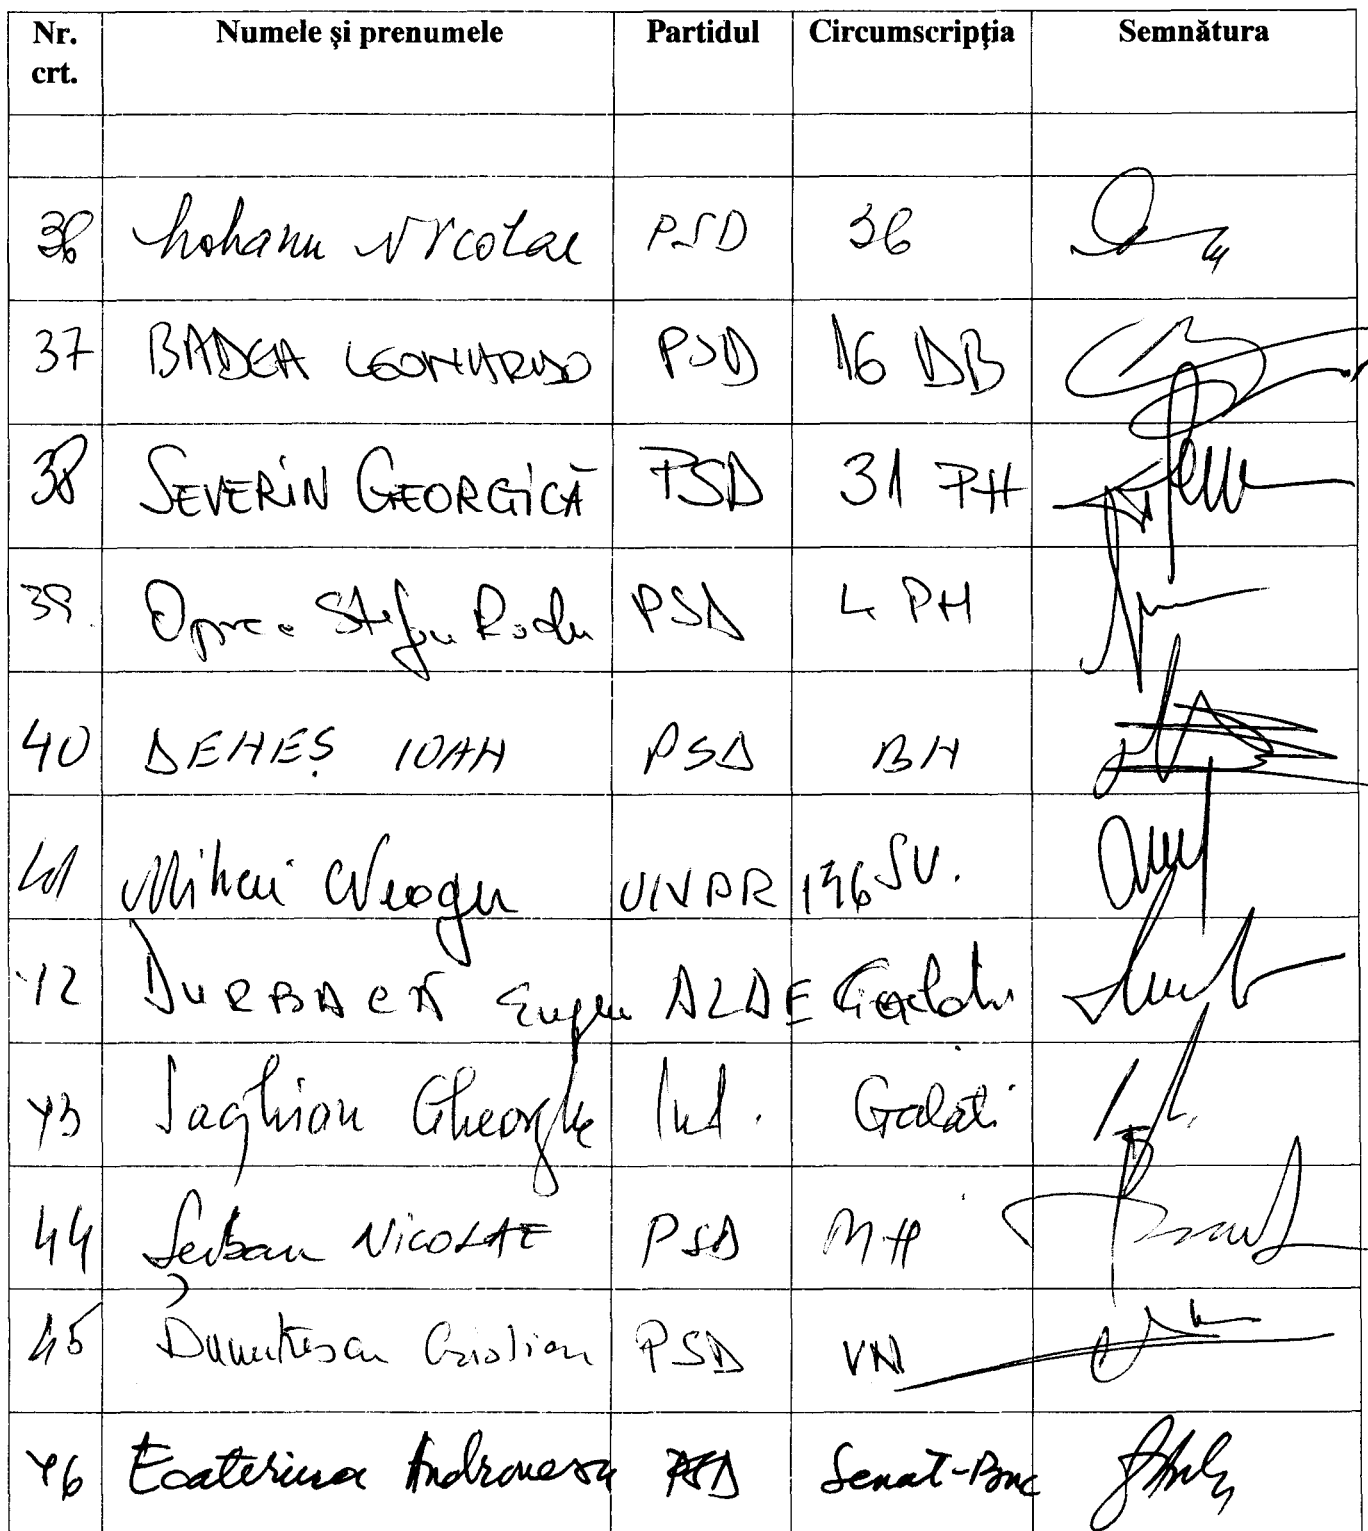 Nr. crt. Numele și prenumele Partidul Circumscripția Semnătura
36 Mohanu Nicolae PSD 36
37 BADEA LEONARDO PSD 16 DB
38 SEVERIN GEORGICĂ PSD 31 PH
39. Oprea Ștefan Radu PSD 4 PH
40 DENEȘ IOAN PSD BN
41 Mihai Neagu UNPR SV.
42 DURBACĂ Eugen ALDE Galați
43 Saghian Gheorghe Ind. Galați
44 Șerban NICOLAE PSD MH
45 Dumitrescu Cristian PSD VN
46 Ecaterina Andronescu PSD Senat-Buc